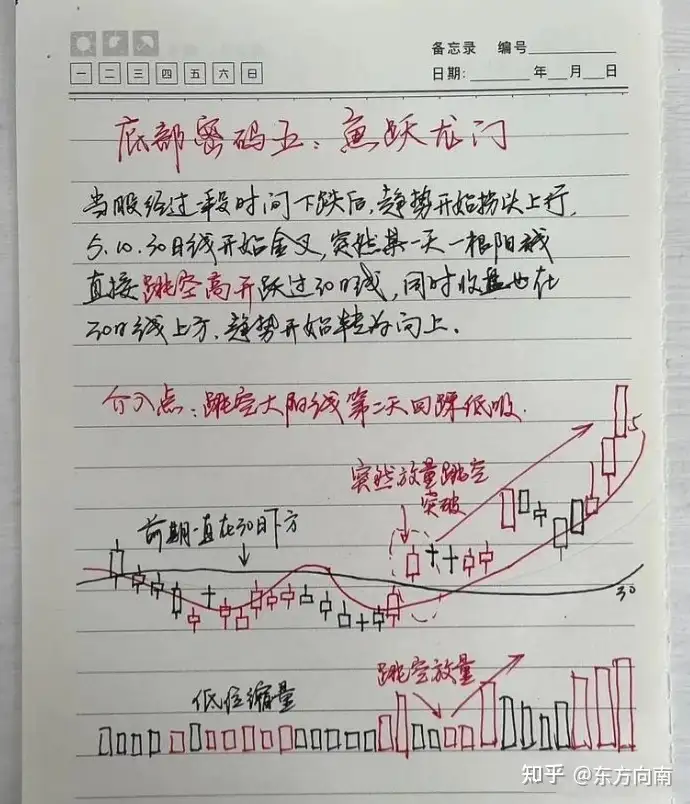 备忘录 编号
一 二 三 四 五 六 日
日期: 年 月 日
底部密码五：鱼跃龙门
当股经过一段时间下跌后，趋势开始拐头上行，
5.10.30日线开始金叉，突然某一天一根阳线
直接跳空高开跃过30日线，同时收盘也在
30日线上方，趋势开始转为向上。
介入点：跳空大阳线第二天回踩低吸.
突然放量跳空
突破
5
前期一直在30日下方
30
跳空放量
低位缩量
知乎 @东方向南